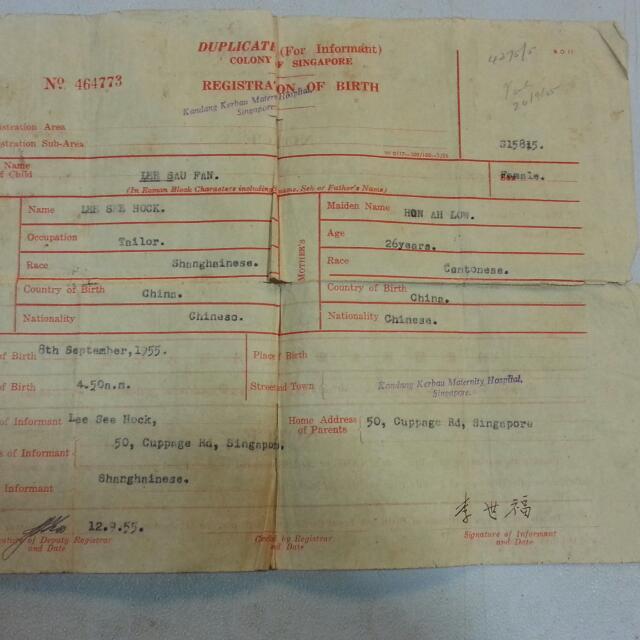 DUPLICATE (For Informant)
COLONY OF SINGAPORE
No. 464773
REGISTRATION OF BIRTH
Kandang Kerbau Maternity Hospital,
Singapore.
4275/5
istration Area
istration Sub-Area
S15815.
Name
of Child
LEE SAU FAN.
Female.
(In Roman Block Characters including Surname, Seh or Father's Name)
Name LEE SEE HOCK.
Maiden Name HON AH LOW.
Occupation Tailor.
Age 26years.
Race Shanghainese.
MOTHER'S
Race Cantonese.
Country of Birth China.
Country of Birth China.
Nationality Chinese.
Nationality Chinese.
of Birth 8th September, 1955.
Place Birth
of Birth 4.50a.m.
Street and Town
Kandang Kerbau Maternity Hospital,
Singapore.
of Informant Lee See Hock,
Home Address of Parents 50, Cuppage Rd, Singapore
s of Informant 50, Cuppage Rd, Singapore,
Informant Shanghainese.
12.9.55.
李世福
Signature of Deputy Registrar
and Date
by Registrar
and Date
Signature of Informant
and Date